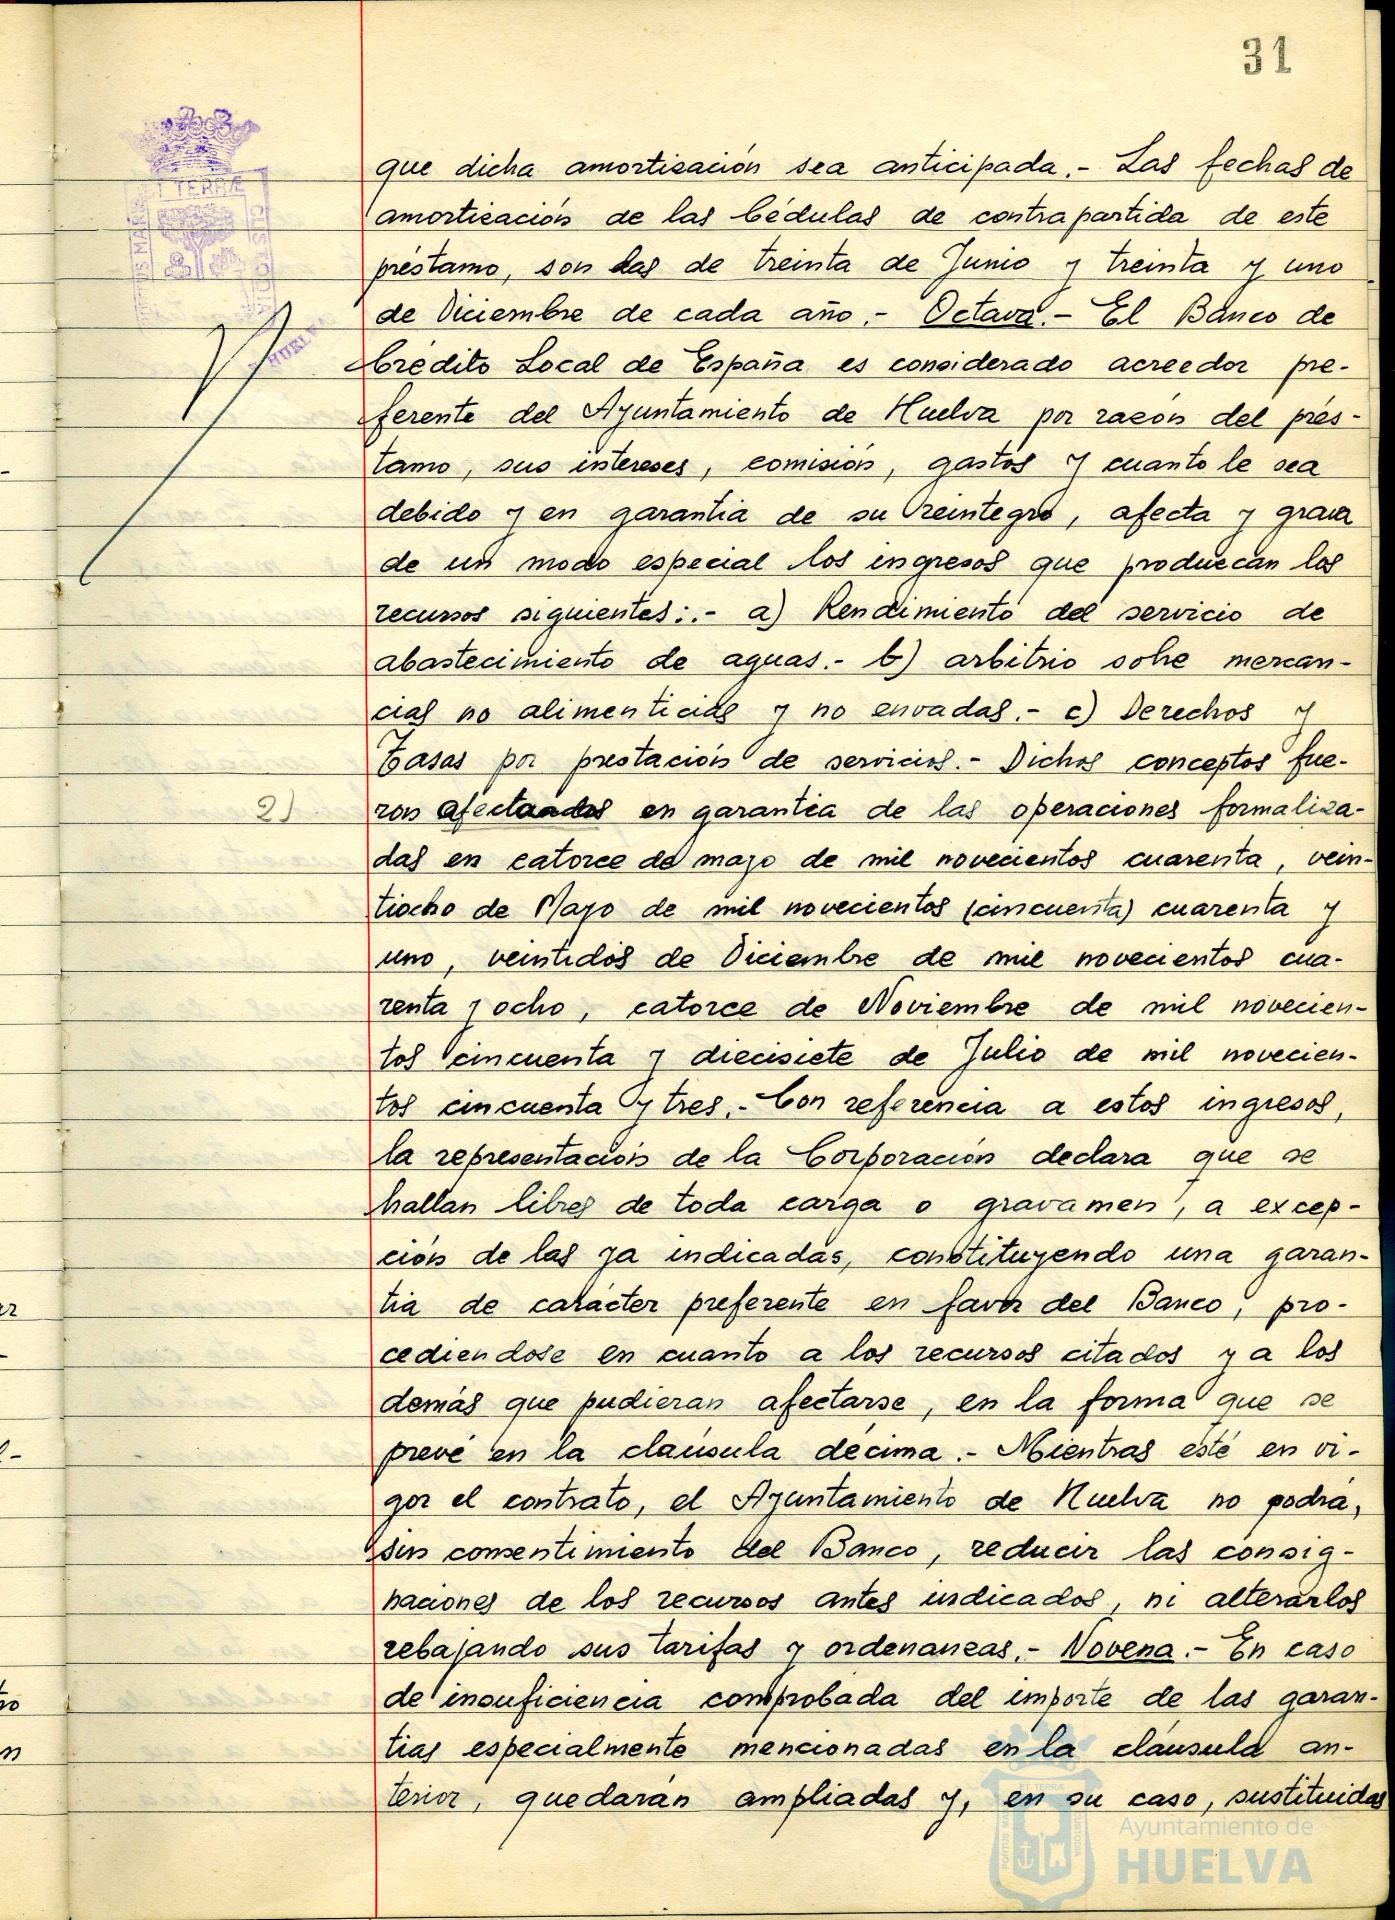 31
que dicha amortización sea anticipada.- Las fechas de
amortización de las Cédulas de contrapartida de este
préstamo, son las de treinta de Junio y treinta y uno
de Diciembre de cada año.- Octava.- El Banco de
Crédito Local de España es considerado acreedor pre-
ferente del Ayuntamiento de Huelva por razón del prés-
tamo, sus intereses, comisión, gastos y cuanto le sea
debido y en garantía de su reintegro, afecta y grava
de un modo especial los ingresos que produzcan los
recursos siguientes:.- a) Rendimiento del servicio de
abastecimiento de aguas.- b) arbitrio sobre mercan-
cias no alimenticias y no envadas.- c) Derechos y
Tasas por prestación de servicios.- Dichos conceptos fue-
2)
ron afectados en garantia de las operaciones formaliza-
das en catorce de mayo de mil novecientos cuarenta, vein-
tiocho de Mayo de mil novecientos (cincuenta) cuarenta y
uno, veintidós de Diciembre de mil novecientos cua-
renta y ocho, catorce de Noviembre de mil novecien-
tos cincuenta y diecisiete de Julio de mil novecien-
tos cincuenta y tres.- Con referencia a estos ingresos,
la representación de la Corporación declara que se
hallan libres de toda carga o gravamen, a excep-
ción de las ya indicadas, constituyendo una garan-
tia de carácter preferente en favor del Banco, pro-
cediendose en cuanto a los recursos citados y a los
demás que pudieran afectarse, en la forma que se
prevé en la claúsula décima.- Mientras esté en vi-
gor el contrato, el Ayuntamiento de Huelva no podrá,
sin consentimiento del Banco, reducir las consig-
naciones de los recursos antes indicados, ni alterarlos
rebajando sus tarifas y ordenanzas.- Novena.- En caso
de insuficiencia comprobada del importe de las garan-
tias especialmente mencionadas en la cláusula an-
terior, quedarán ampliadas y, en su caso, sustituidas
ET TERRÆ
CUSTODIA
HUELVA
Ayuntamiento de
HUELVA